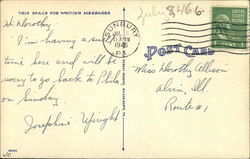 THIS SPACE FOR WRITING MESSAGES
July 8, 1946
Hi Dorothy
I'm having a swell
time here and will be
sorry to go back to Phila
on Sunday.
Josephine Wright
SUNBURY
JUL
1946
PA.
POST CARD
Miss Dorothy Allison
Alvin, Ill.
Route #1